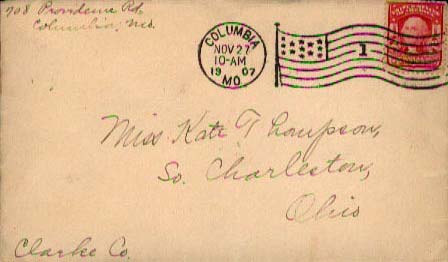 708 Providence Rd.
Columbia, Mo.
COLUMBIA
NOV 27
10-AM
1907
MO.
1
Miss Kate Thompson,
So. Charleston,
Ohio
Clarke Co.